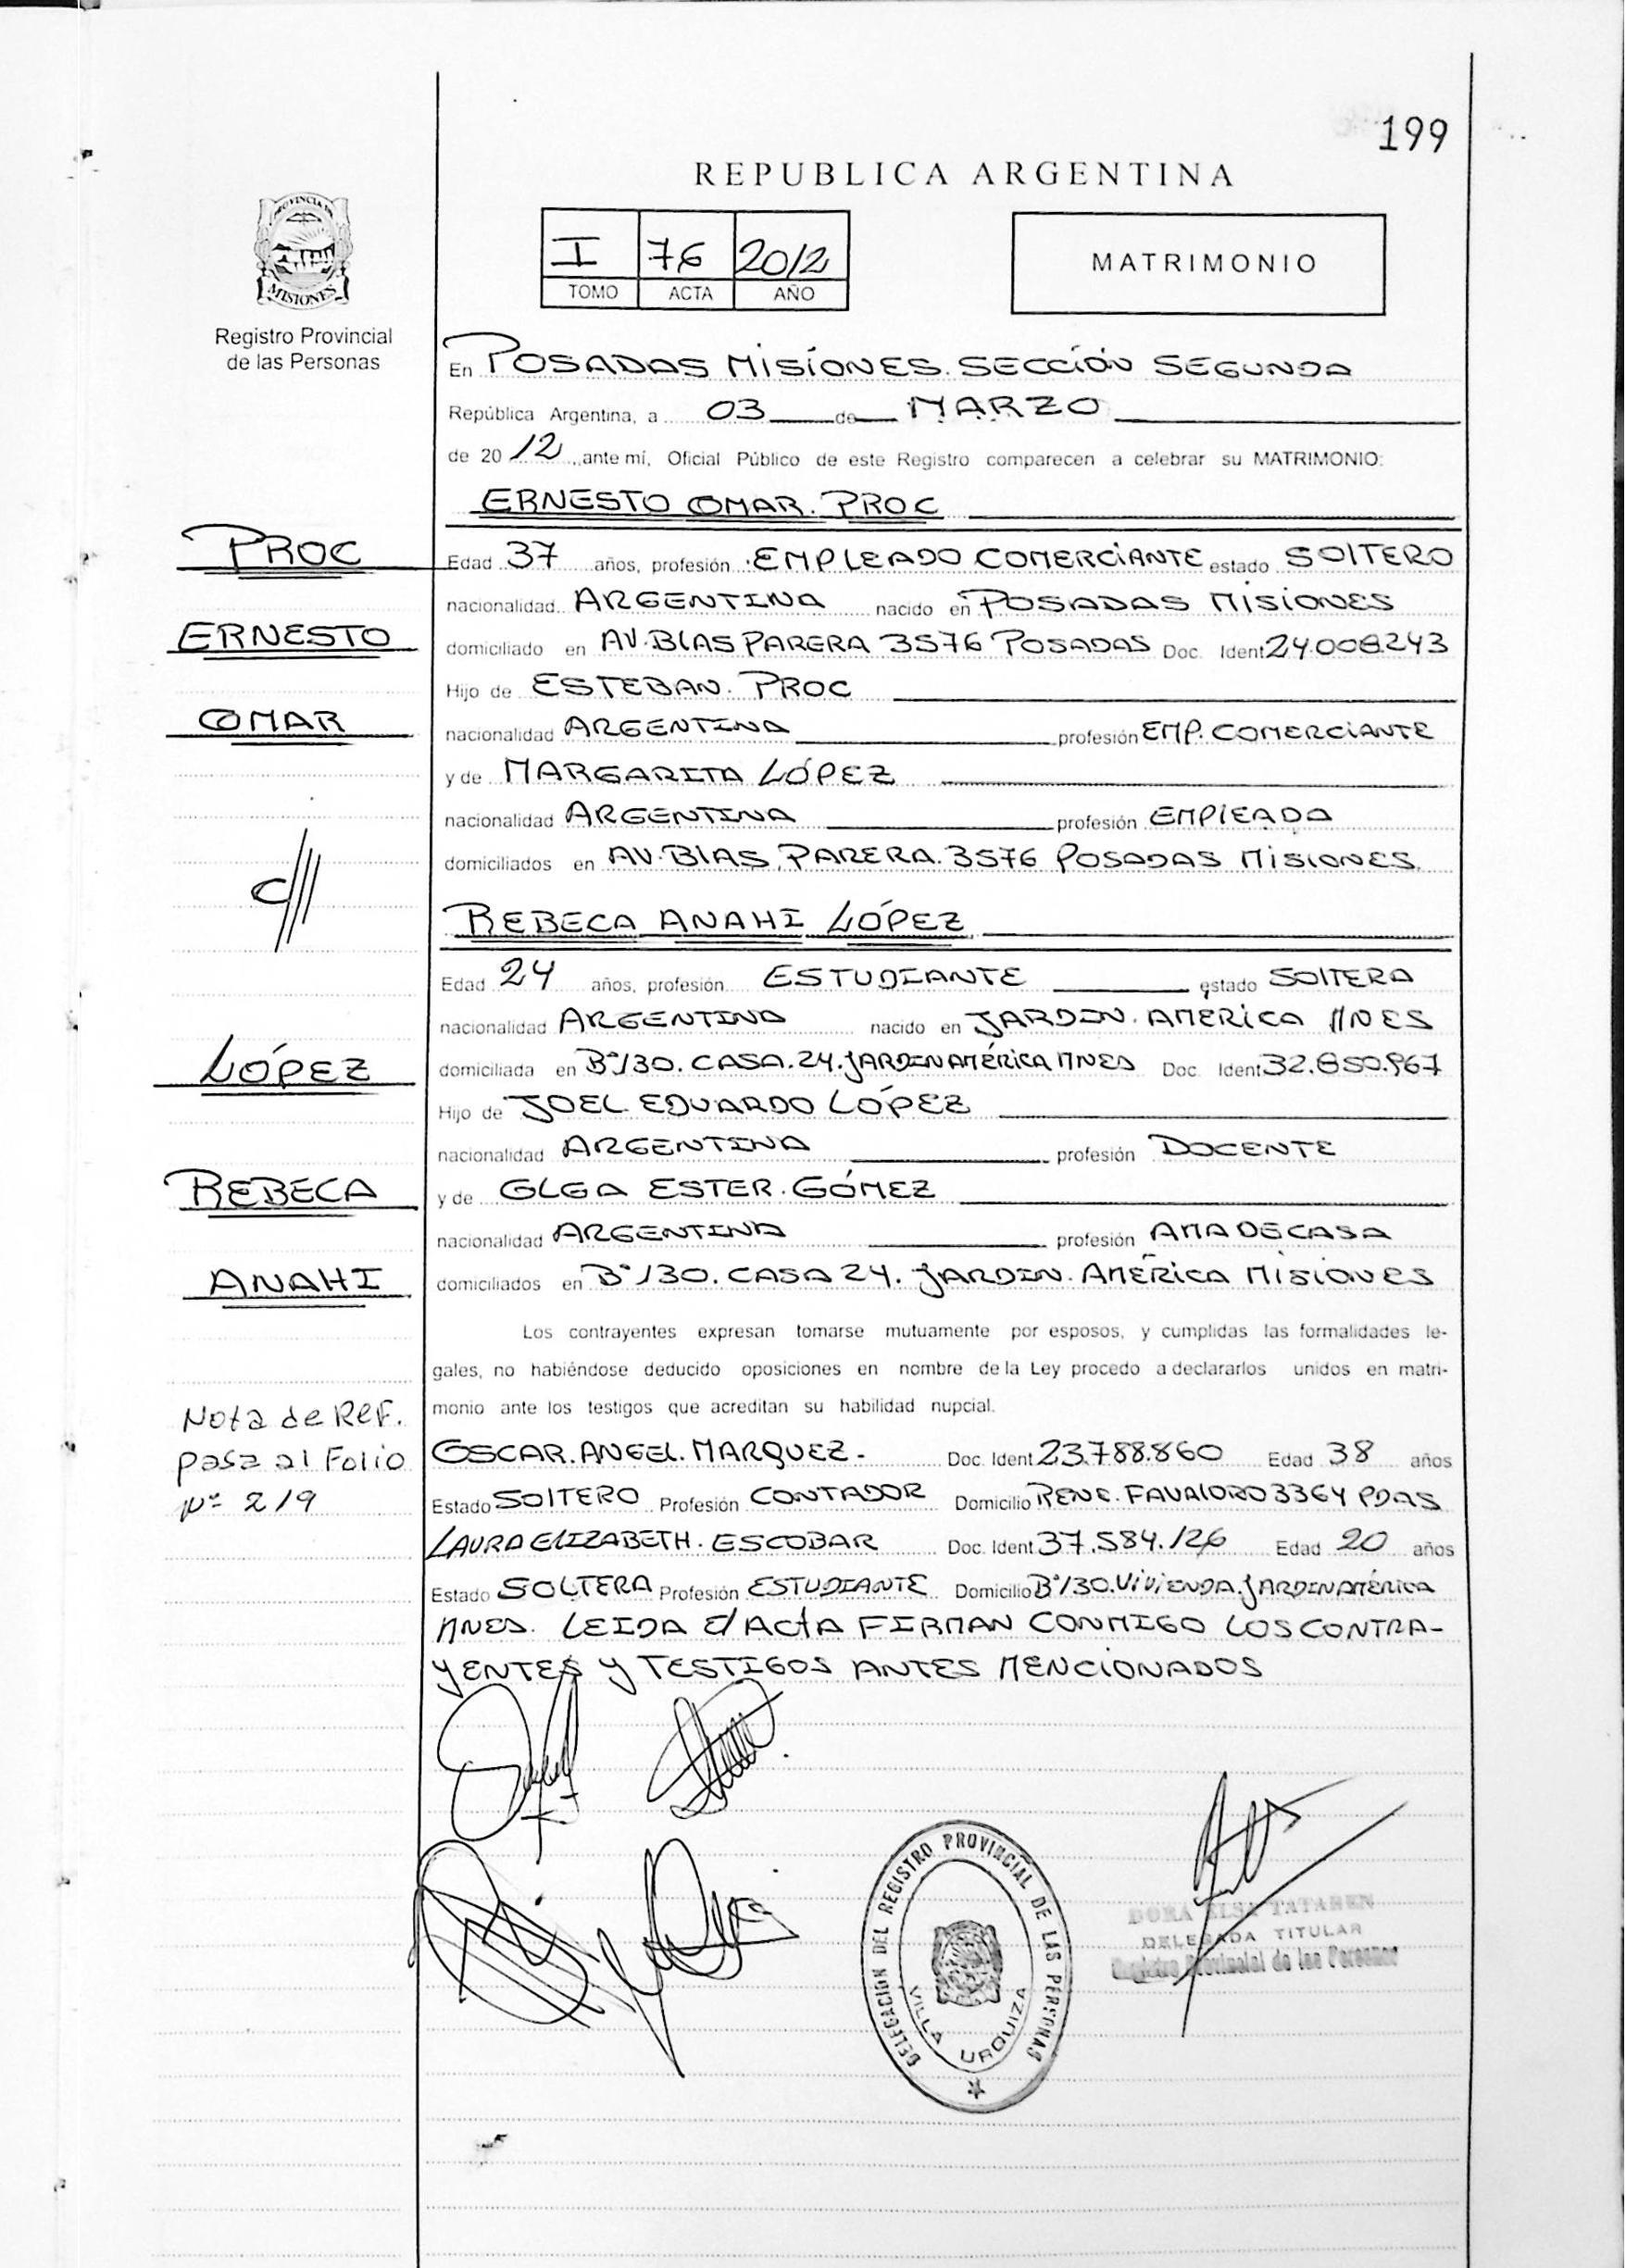 199
REPUBLICA ARGENTINA
PROVINCIA DE
MISIONES
Registro Provincial
de las Personas
I 76 2012
TOMO ACTA AÑO
MATRIMONIO
En POSADAS MISIONES. SECCIÓN SEGUNDA
República Argentina, a 03 de MARZO
de 2012, ante mí, Oficial Público de este Registro comparecen a celebrar su MATRIMONIO:
ERNESTO OMAR. PROC
PROC
Edad 37 años, profesión EMPLEADO COMERCIANTE estado SOLTERO
nacionalidad ARGENTINA nacido en POSADAS MISIONES
ERNESTO
domiciliado en AV. BLAS PARERA 3576 POSADAS Doc. Ident 24.008.243
Hijo de ESTEBAN. PROC
OMAR
nacionalidad ARGENTINA profesión EMP. COMERCIANTE
y de MARGARITA LÓPEZ
nacionalidad ARGENTINA profesión EMPLEADA
domiciliados en AV. BLAS PARERA. 3576 POSADAS MISIONES.
C///
REBECA ANAHI LÓPEZ
Edad 24 años, profesión ESTUDIANTE estado SOLTERA
nacionalidad ARGENTINA nacido en JARDIN. AMERICA MNES
LÓPEZ
domiciliada en B° 130. CASA. 24. JARDIN AMÉRICA MNES Doc. Ident 32.850.967
Hijo de JOEL EDUARDO LÓPEZ
nacionalidad ARGENTINA profesión DOCENTE
REBECA
y de OLGA ESTER. GÓMEZ
nacionalidad ARGENTINA profesión AMA DE CASA
ANAHI
domiciliados en B° 130. CASA 24. JARDIN. AMERICA MISIONES
Los contrayentes expresan tomarse mutuamente por esposos, y cumplidas las formalidades le-
gales, no habiéndose deducido oposiciones en nombre de la Ley procedo a declararlos unidos en matri-
monio ante los testigos que acreditan su habilidad nupcial.
Nota de Ref.
pasa al Folio
Nº 219
OSCAR. ANGEL. MARQUEZ.- Doc. Ident 23.788.860 Edad 38 años
Estado SOLTERO Profesión CONTADOR Domicilio RENE. FAVALORO 3364 PDAS
LAURA ELIZABETH. ESCOBAR Doc. Ident 37.584.126 Edad 20 años
Estado SOLTERA Profesión ESTUDIANTE Domicilio B° 130. VIVIENDA. JARDIN AMÉRICA
MNES. LEIDA El ACTA FIRMAN CONMIGO LOS CONTRA-
YENTES Y TESTIGOS ANTES MENCIONADOS
DELEGACION DEL REGISTRO PROVINCIAL DE LAS PERSONAS
VILLA URQUIZA
DORA ELSA TATAREN
DELEGADA TITULAR
Registro Provincial de las Personas